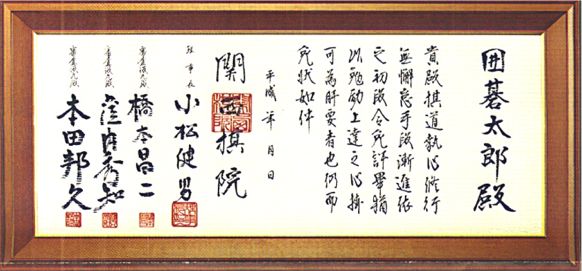 囲碁太郎殿
貴殿棋道執心修行
無懈怠手段漸進依
之初段令免許畢猶
以勉励上達之心掛
可為肝要者也仍而
免状如件
平成 年 月 日
関西棋院
理事長 小松健男
審査役九段 橋本昌二
審査役九段 窪内秀知
審査役九段 本田邦久